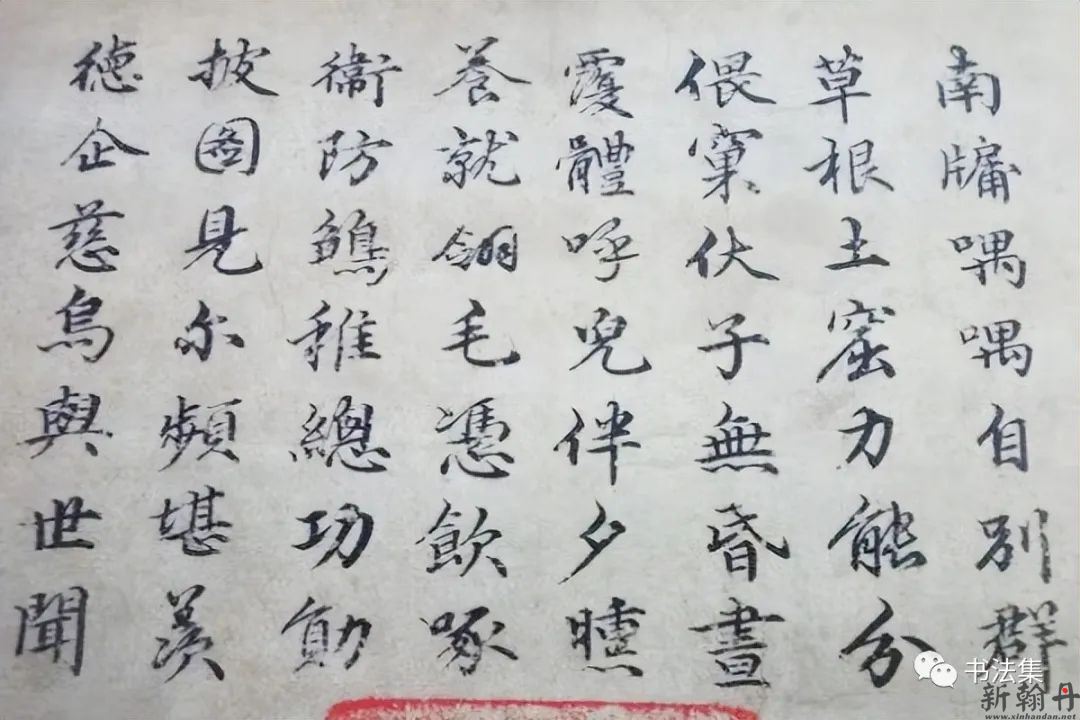 南牗喁喁自別群
草根土窟力能分
偎窠伏子無昏晝
覆體呼兒伴夕曛
養就翎毛憑飲啄
衞防鶵稚總功勛
披圖見尔頻堪羨
德企慈烏與世聞
书法集
新翰丹
www.xinhandan.net